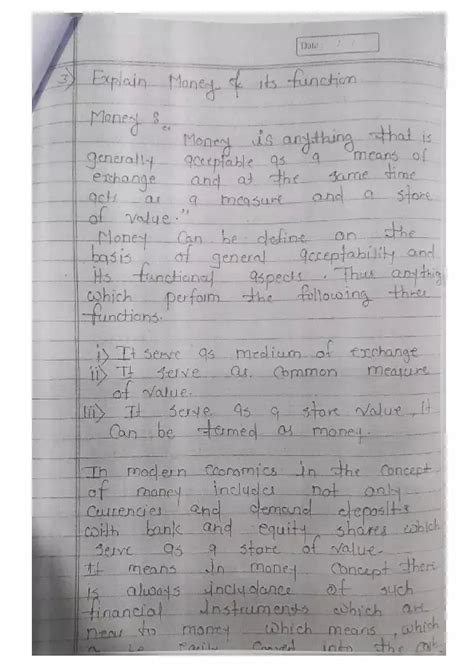 Date : / /
3) Explain Money & its function
Money :-
"Money is anything that is
generally acceptable as a means of
exchange and at the same time
acts as a measure and a store
of value."
Money Can be define on the
basis of general acceptability and
its functional aspects. Thus anything
which perform the following three
functions.
i) It serve as medium of exchange
ii) It serve as common measure
of value.
iii) It serve as a store value, it
Can be termed as money.
In modern economics in the concept
of money includes not only
currencies and demand deposits
with bank and equity shares which
serve as a store of value.
It means in money concept there
is always inclydance of such
financial instruments which are
near to money which means, which
easily into the